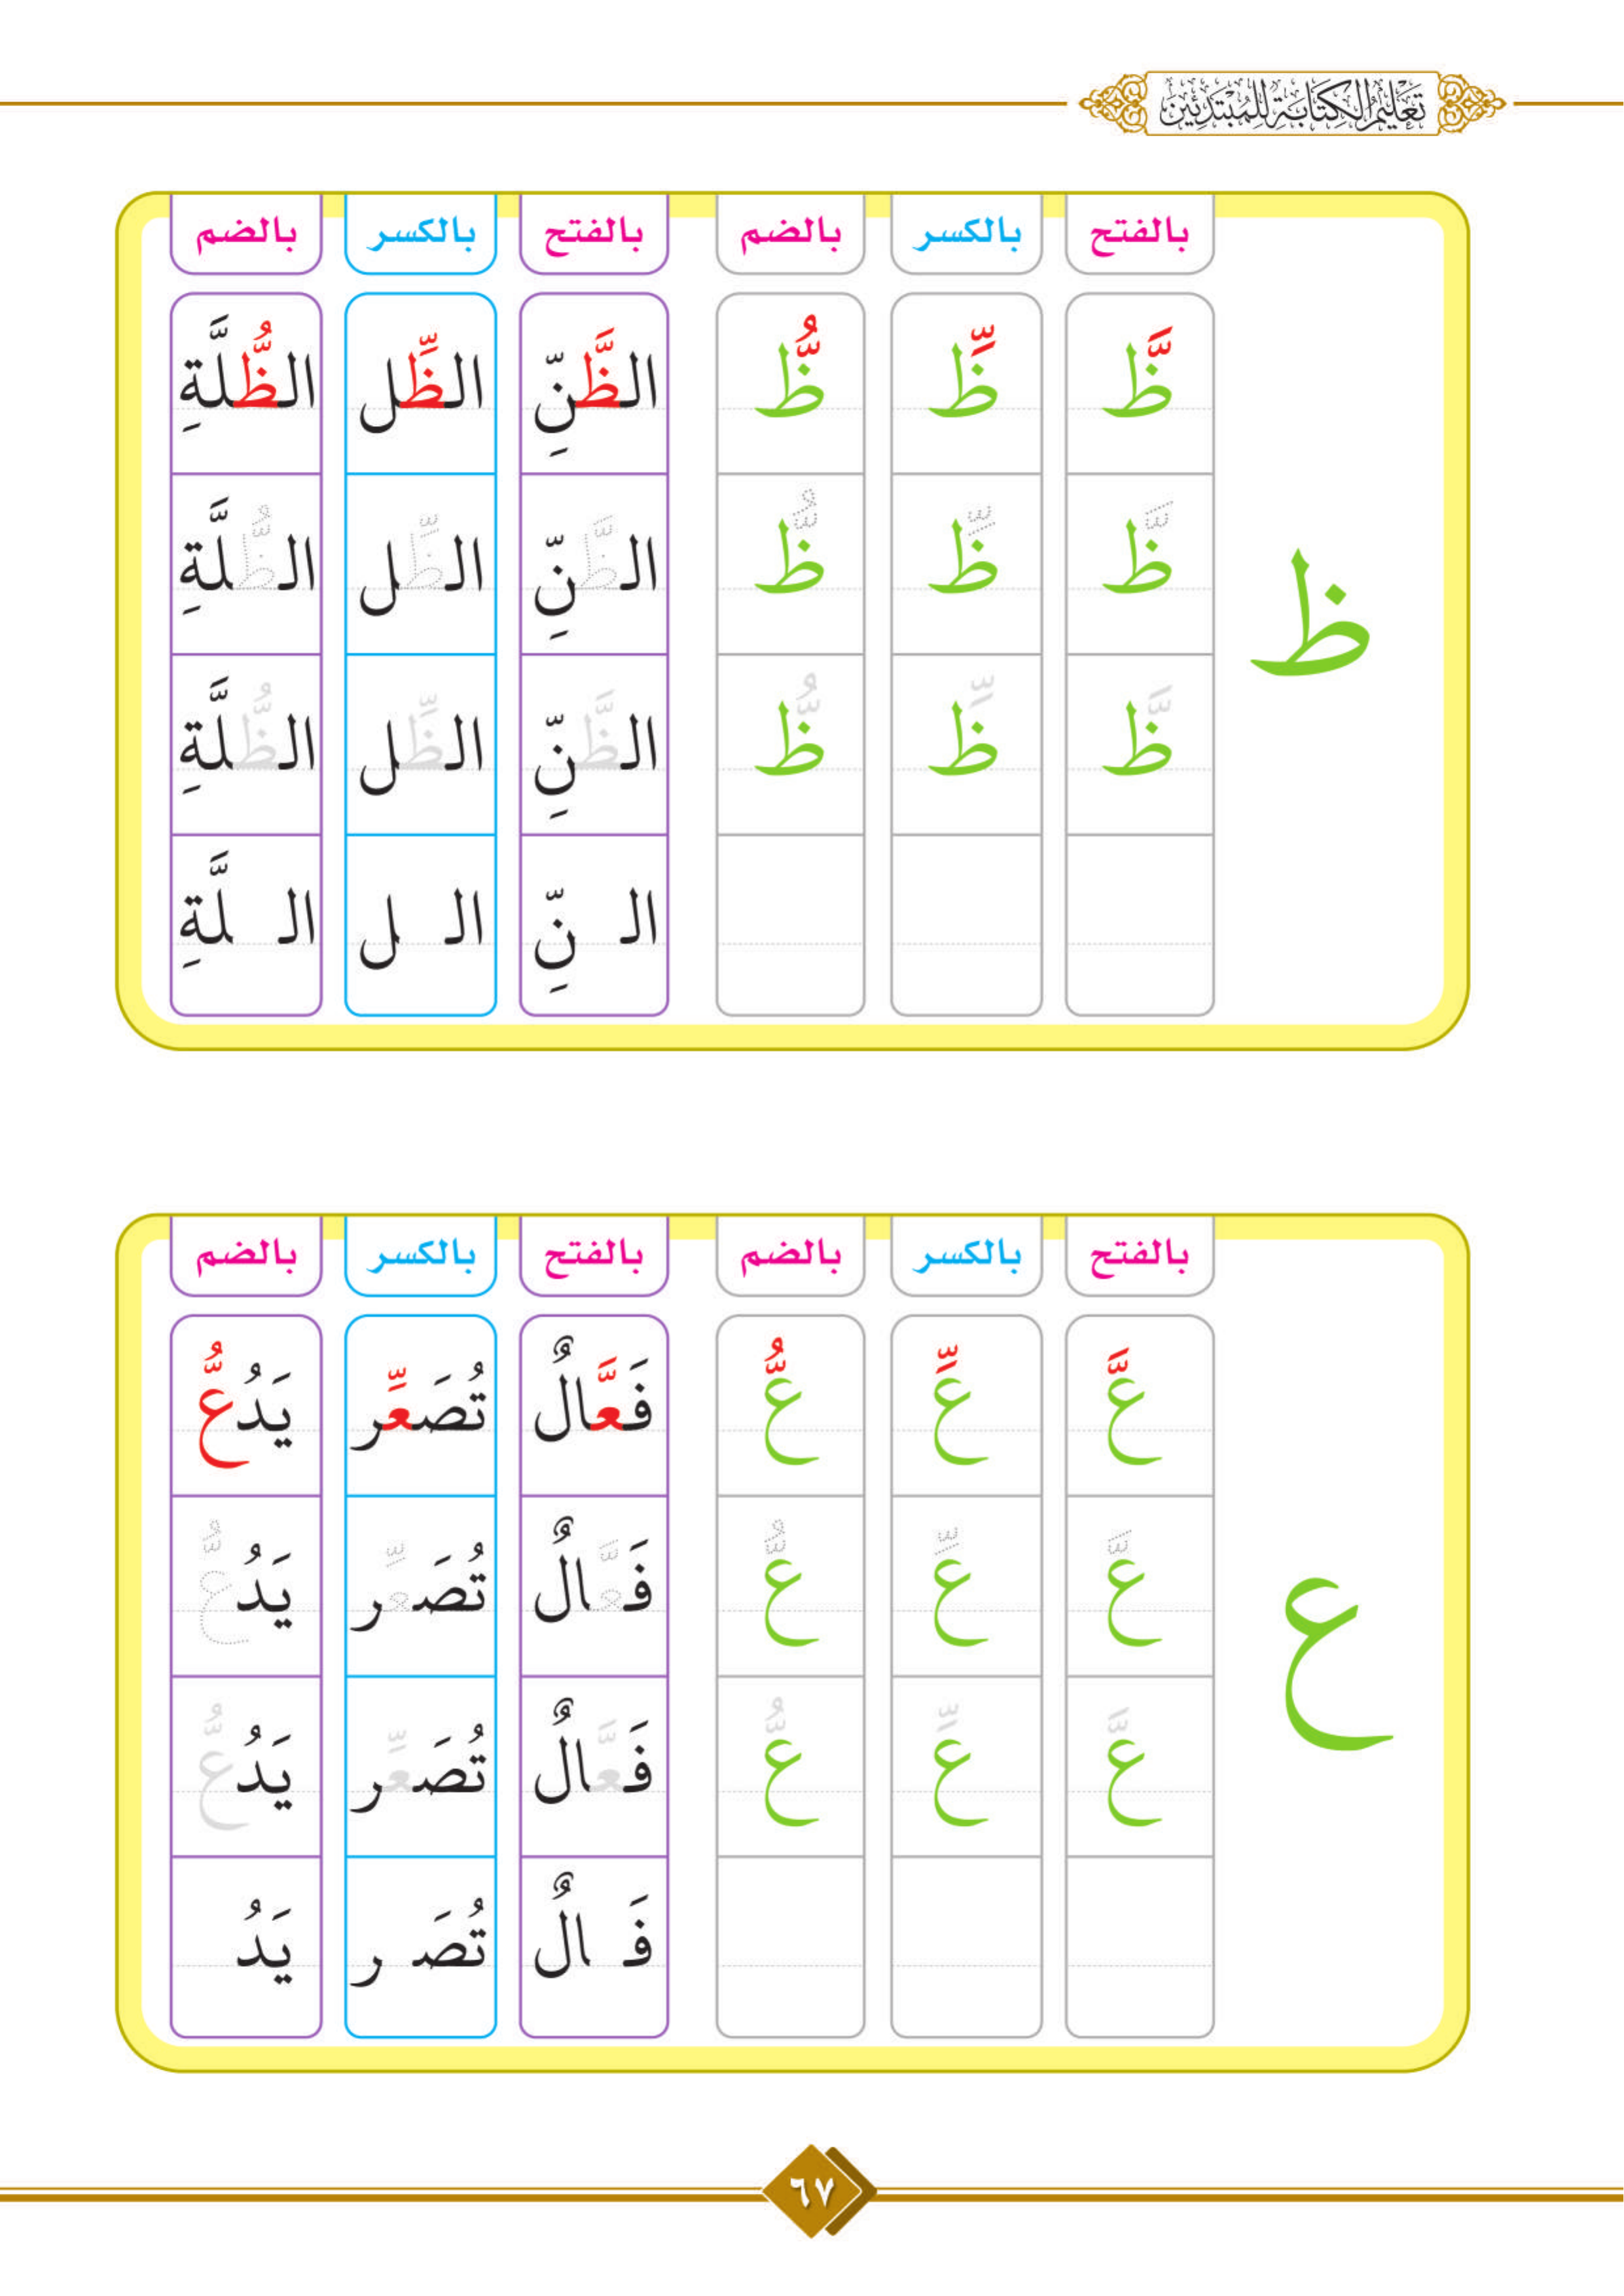 تَعْلِيمُ الْكِتَابَةِ لِلْمُبْتَدِئِينَ
بالفتح بالكسر بالضم بالفتح بالكسر بالضم
ظَّ ظِّ ظُّ الظَّنِّ الظِّل الظُّلَّةِ
ظَّ ظِّ ظُّ الظَّنِّ الظِّل الظُّلَّةِ
ظ
ظَّ ظِّ ظُّ الظَّنِّ الظِّل الظُّلَّةِ
الـ نِّ الـ ل الـ لَّةِ
بالفتح بالكسر بالضم بالفتح بالكسر بالضم
عَّ عِّ عُّ فَعَّالٌ تُصَعِّر يَدُعُّ
عَّ عِّ عُّ فَعَّالٌ تُصَعِّر يَدُعُّ
ع
عَّ عِّ عُّ فَعَّالٌ تُصَعِّر يَدُعُّ
فَـ ـالٌ تُصَـ ـر يَدُ
٦٧